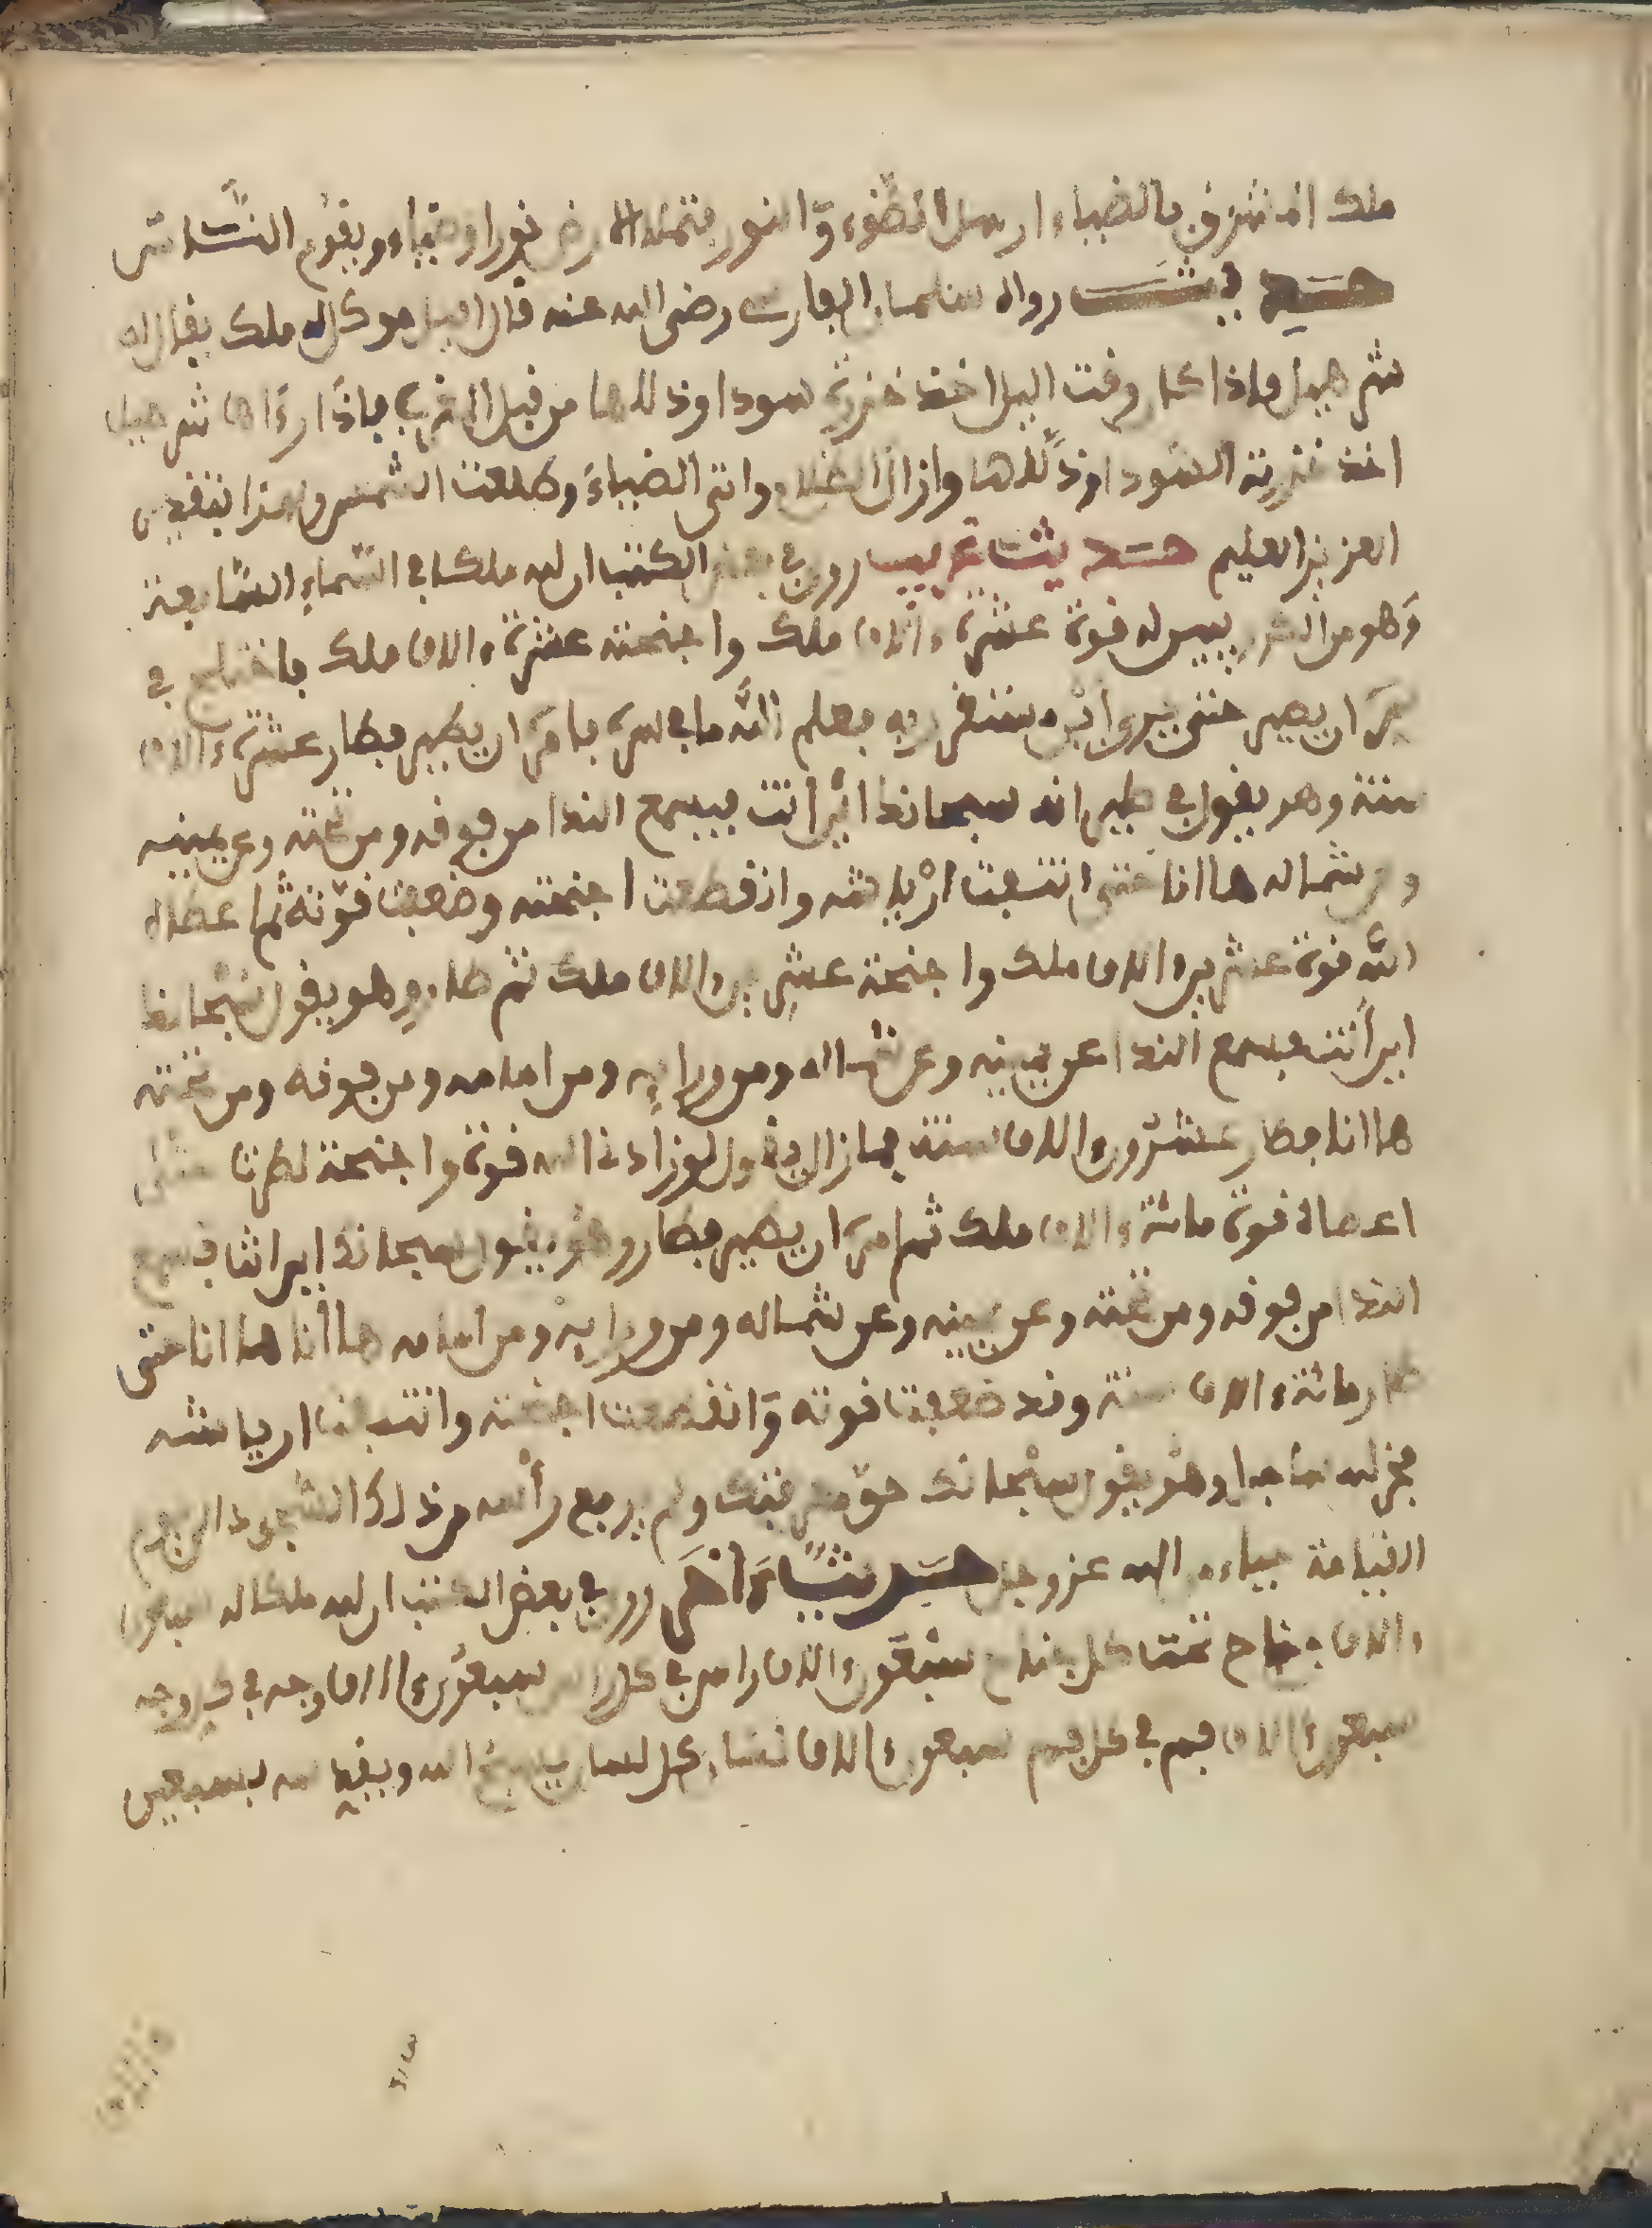 ملك المشرق بالضياء ارسل الضوء والنور فتمتلا الارض نورا وضياء ويقوم الناس
حديث رواه سلمان الفارسي رضي الله عنه قال الليل موكل به ملك يقال له
شرهيل فاذا كان وقت اليل اخذ خزرة سودا ودلاها من قبل المغرب فاذا رءاها شرهيل
اخذ خزرة السودا ودلاها وازال الظلام واتى الضياء وطلعت الشمس وهذا بتقدير
العزيز العليم حديث غريب روي في بعض الكتب ان لله ملكا في السماء السابعة
وهو من الكروبيين له قوة عشرة ءالاف ملك واجنحته عشرة ءالاف ملك فاختلج في
سره ان يطير حتى يرى اين مستقر ربه فعلم الله ما في سره فامره ان يطير فطار عشرة ءالاف
سنة وهو يقول في طيرانه سبحانك اين انت فيسمع الندا من فوقه ومن تحته وعن يمينه
وعن شماله ها انا حتى انتسفت ارياشه وانقطعت اجنحته وضعفت قوته ثم اعطاه
الله قوة عشرين ءالاف ملك واجنحة عشرين ءالاف ملك ثم طار وهو يقول سبحانك
اين انت فيسمع الندا عن يمينه وعن شماله ومن ورايه ومن امامه ومن فوقه ومن تحته
ها انا فطار عشرون ءالاف سنة فما زال يقول لو زادني الله قوة واجنحة لطرت حتى
اعطاه قوة مائة ءالاف ملك ثم امره ان يطير فطار وهو يقول سبحانك اين انت فيسمع
الندا من فوقه ومن تحته وعن يمينه وعن شماله ومن ورايه ومن امامه ها انا ها انا حتى
طار مائة ءالاف سنة وقد ضعفت قوته وانقطعت اجنحته وانتسفت ارياشه
فخر لله ساجدا وهو يقول سبحانك حق معرفتك ولم يرفع رأسه من ذلك السجود الى يوم
القيامة حياء من الله عز وجل حديث ءاخر روي في بعض الكتب ان لله ملكا له سبعون
ءالاف جناح تحت كل جناح سبعون ءالاف راس في كل راس سبعون ءالاف وجه في كل وجه
سبعون ءالاف فم في كل فم سبعون ءالاف لسان كل لسان يسبح الله ويقدسه بسبعين